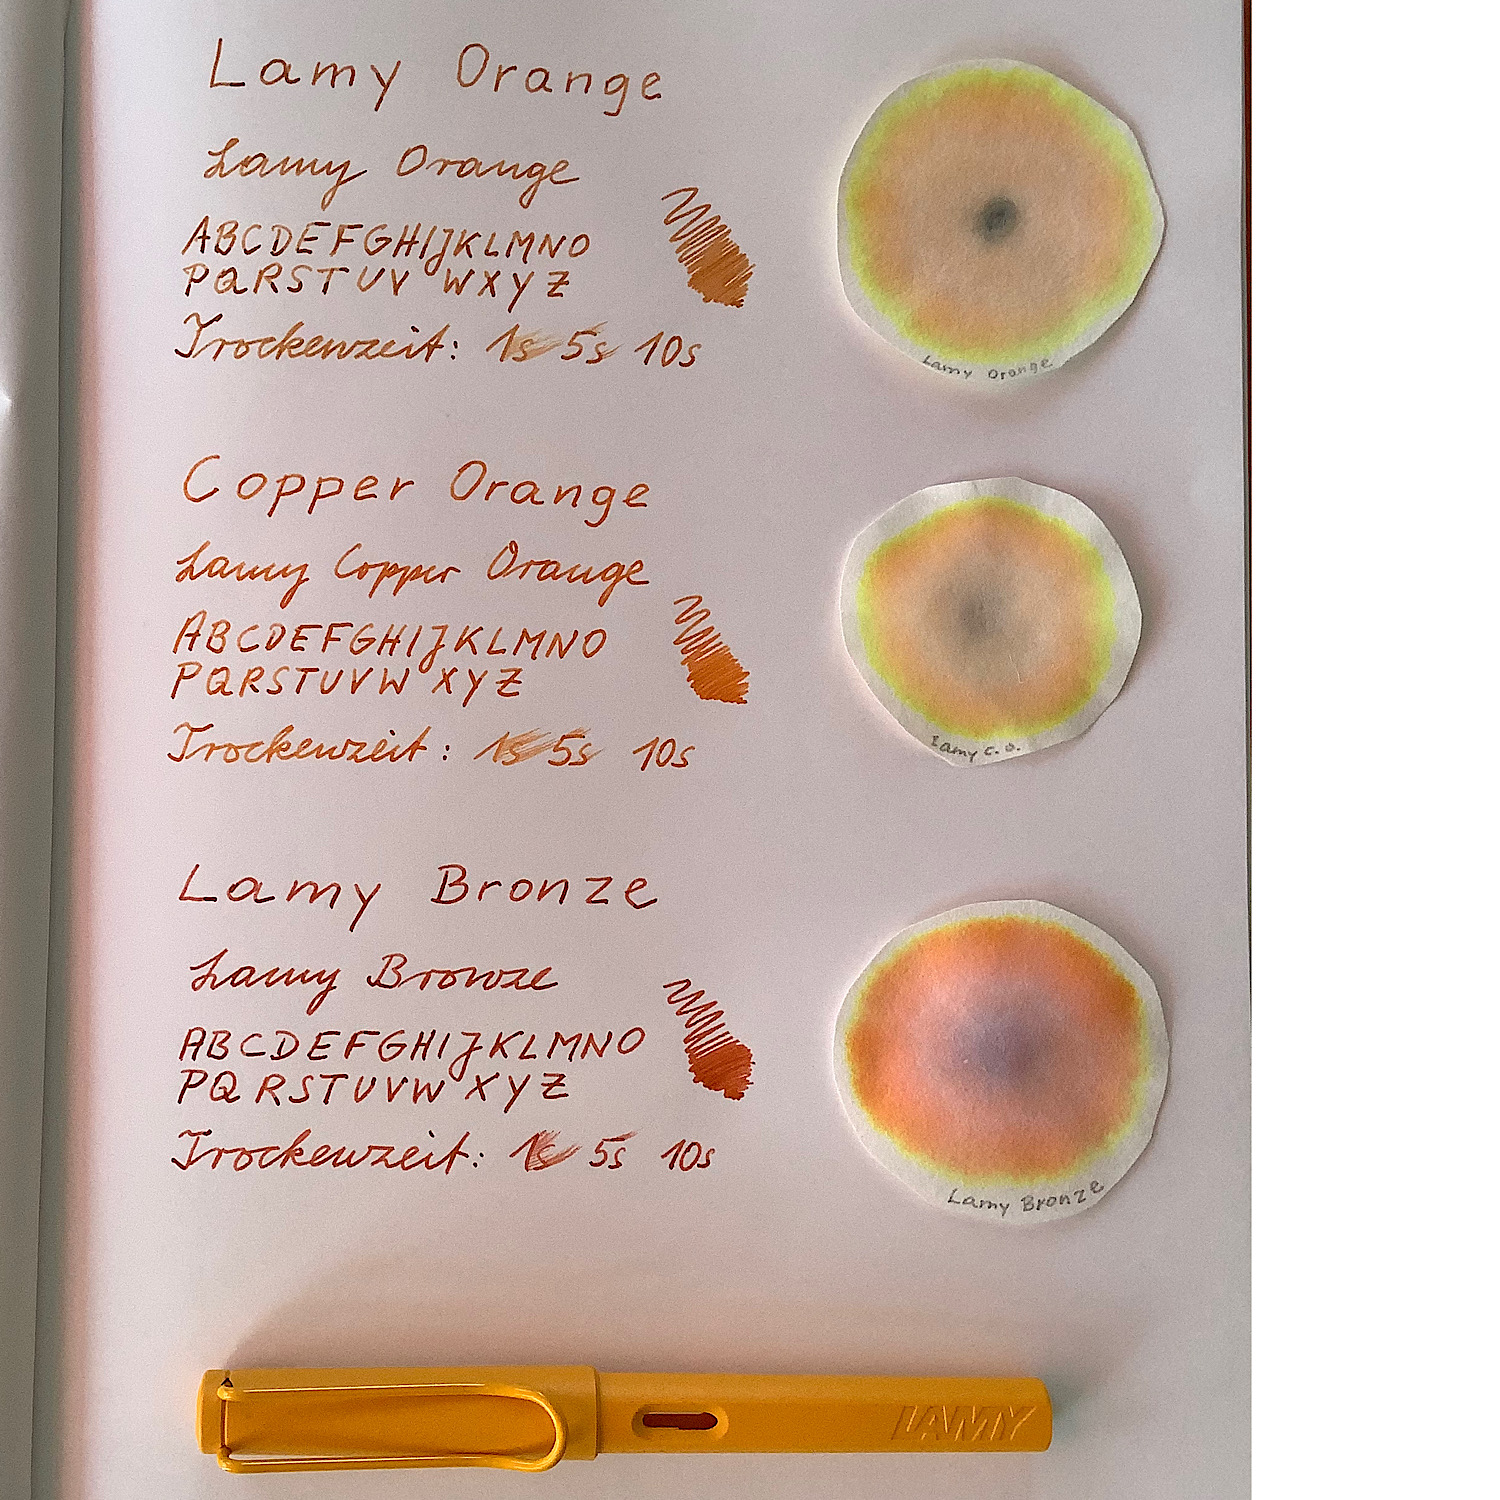 Lamy Orange
Lamy Orange
ABCDEFGHIJKLMNO
PQRSTUV WXYZ
Trockenzeit: 1s 5s 10s
Lamy Orange
Copper Orange
Lamy Copper Orange
ABCDEFGHIJKLMNO
PQRSTUVW XYZ
Trockenzeit: 1s 5s 10s
Lamy C. O.
Lamy Bronze
Lamy Bronze
ABCDEFGHIJKLMNO
PQRSTUVW XYZ
Trockenzeit: 1s 5s 10s
Lamy Bronze
LAMY